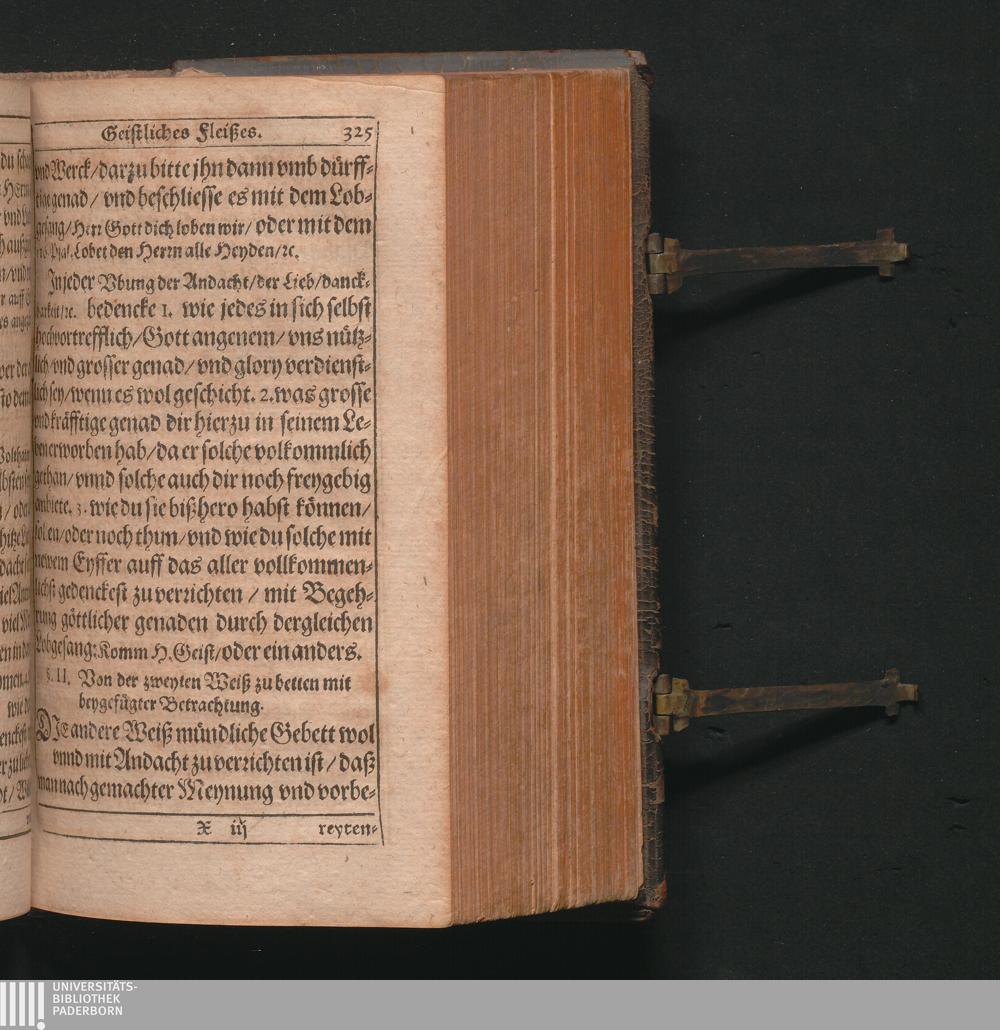 Geistliches Fleißes. 325
vnd Werck/darzu bitte jhn dann vmb dürff-
tige genad / vnd beschliesse es mit dem Lob-
gesang/Herr Gott dich loben wir/ oder mit dem
Psal. Lobet den Herrn alle Heyden/ꝛc.
In jeder Vbung der Andacht/der Lieb/danck-
barkeit/ꝛc. bedencke 1. wie jedes in sich selbst
hochvortrefflich/Gott angenem/ vns nütz-
lich/vnd grosser genad/ vnd glory verdienst-
lich sey/wenn es wol geschicht. 2. was grosse
vnd kräfftige genad dir hierzu in seinem Le-
ben erworben hab/da er solche volkommlich
gethan/ vnnd solche auch dir noch freygebig
anbiete. 3. wie du sie bißhero habst können/
sollen/oder noch thun/ vnd wie du solche mit
newem Eyffer auff das aller vollkommen-
lichst gedenckest zu verrichten / mit Begeh-
rung göttlicher genaden durch dergleichen
Lobgesang: Komm H. Geist/ oder ein anders.
§. II. Von der zweyten Weiß zu betten mit
beygefügter Betrachtung.
DIe andere Weiß mündliche Gebett wol
vnnd mit Andacht zu verrichten ist / daß
man nach gemachter Meynung vnd vorbe-
X iij reyten-
UNIVERSITÄTS-
BIBLIOTHEK
PADERBORN